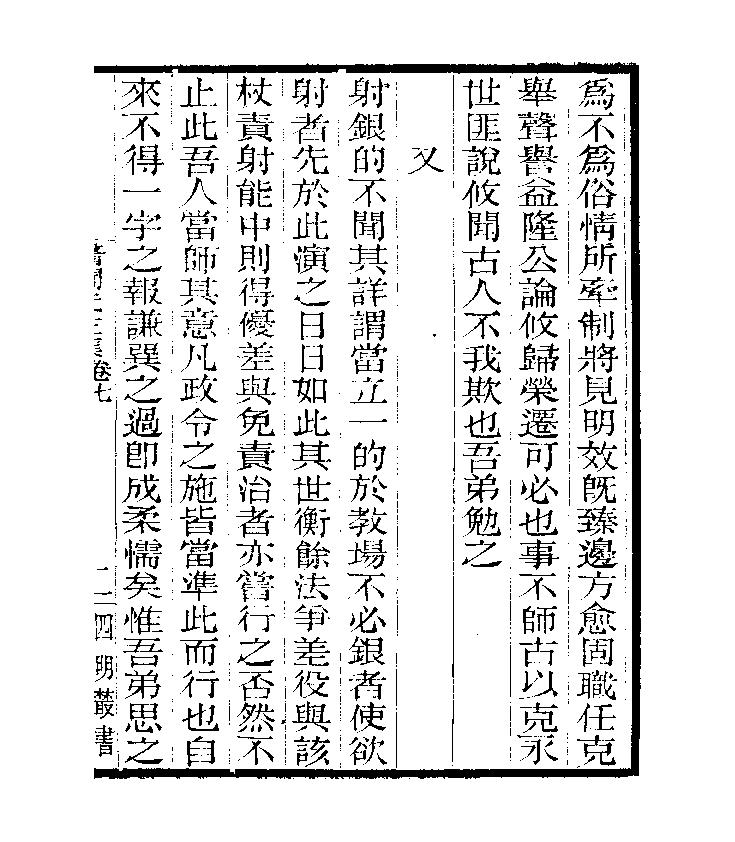 為不為俗情所牽制將見明效旣臻邊方愈固職任克
舉聲譽益隆公論攸歸榮遷可必也事不師古以克永
世匪說攸聞古人不我欺也吾弟勉之
又
射銀的不聞其詳謂當立一的於教場不必銀者使欲
射者先於此演之日日如此其世衡餘法爭差役與該
杖責射能中則得優差與免責治者亦嘗行之否然不
止此吾人當師其意凡政令之施皆當準此而行也自
來不得一字之報謙巽之過卽成柔懦矣惟吾弟思之
集卷七
二 四明叢書